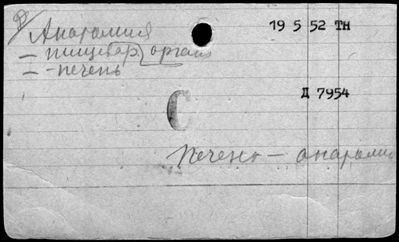 Анатомия
19 5 52 ТН
— пищевар. орган
— печень
Д 7954
С
Печень — анатомия